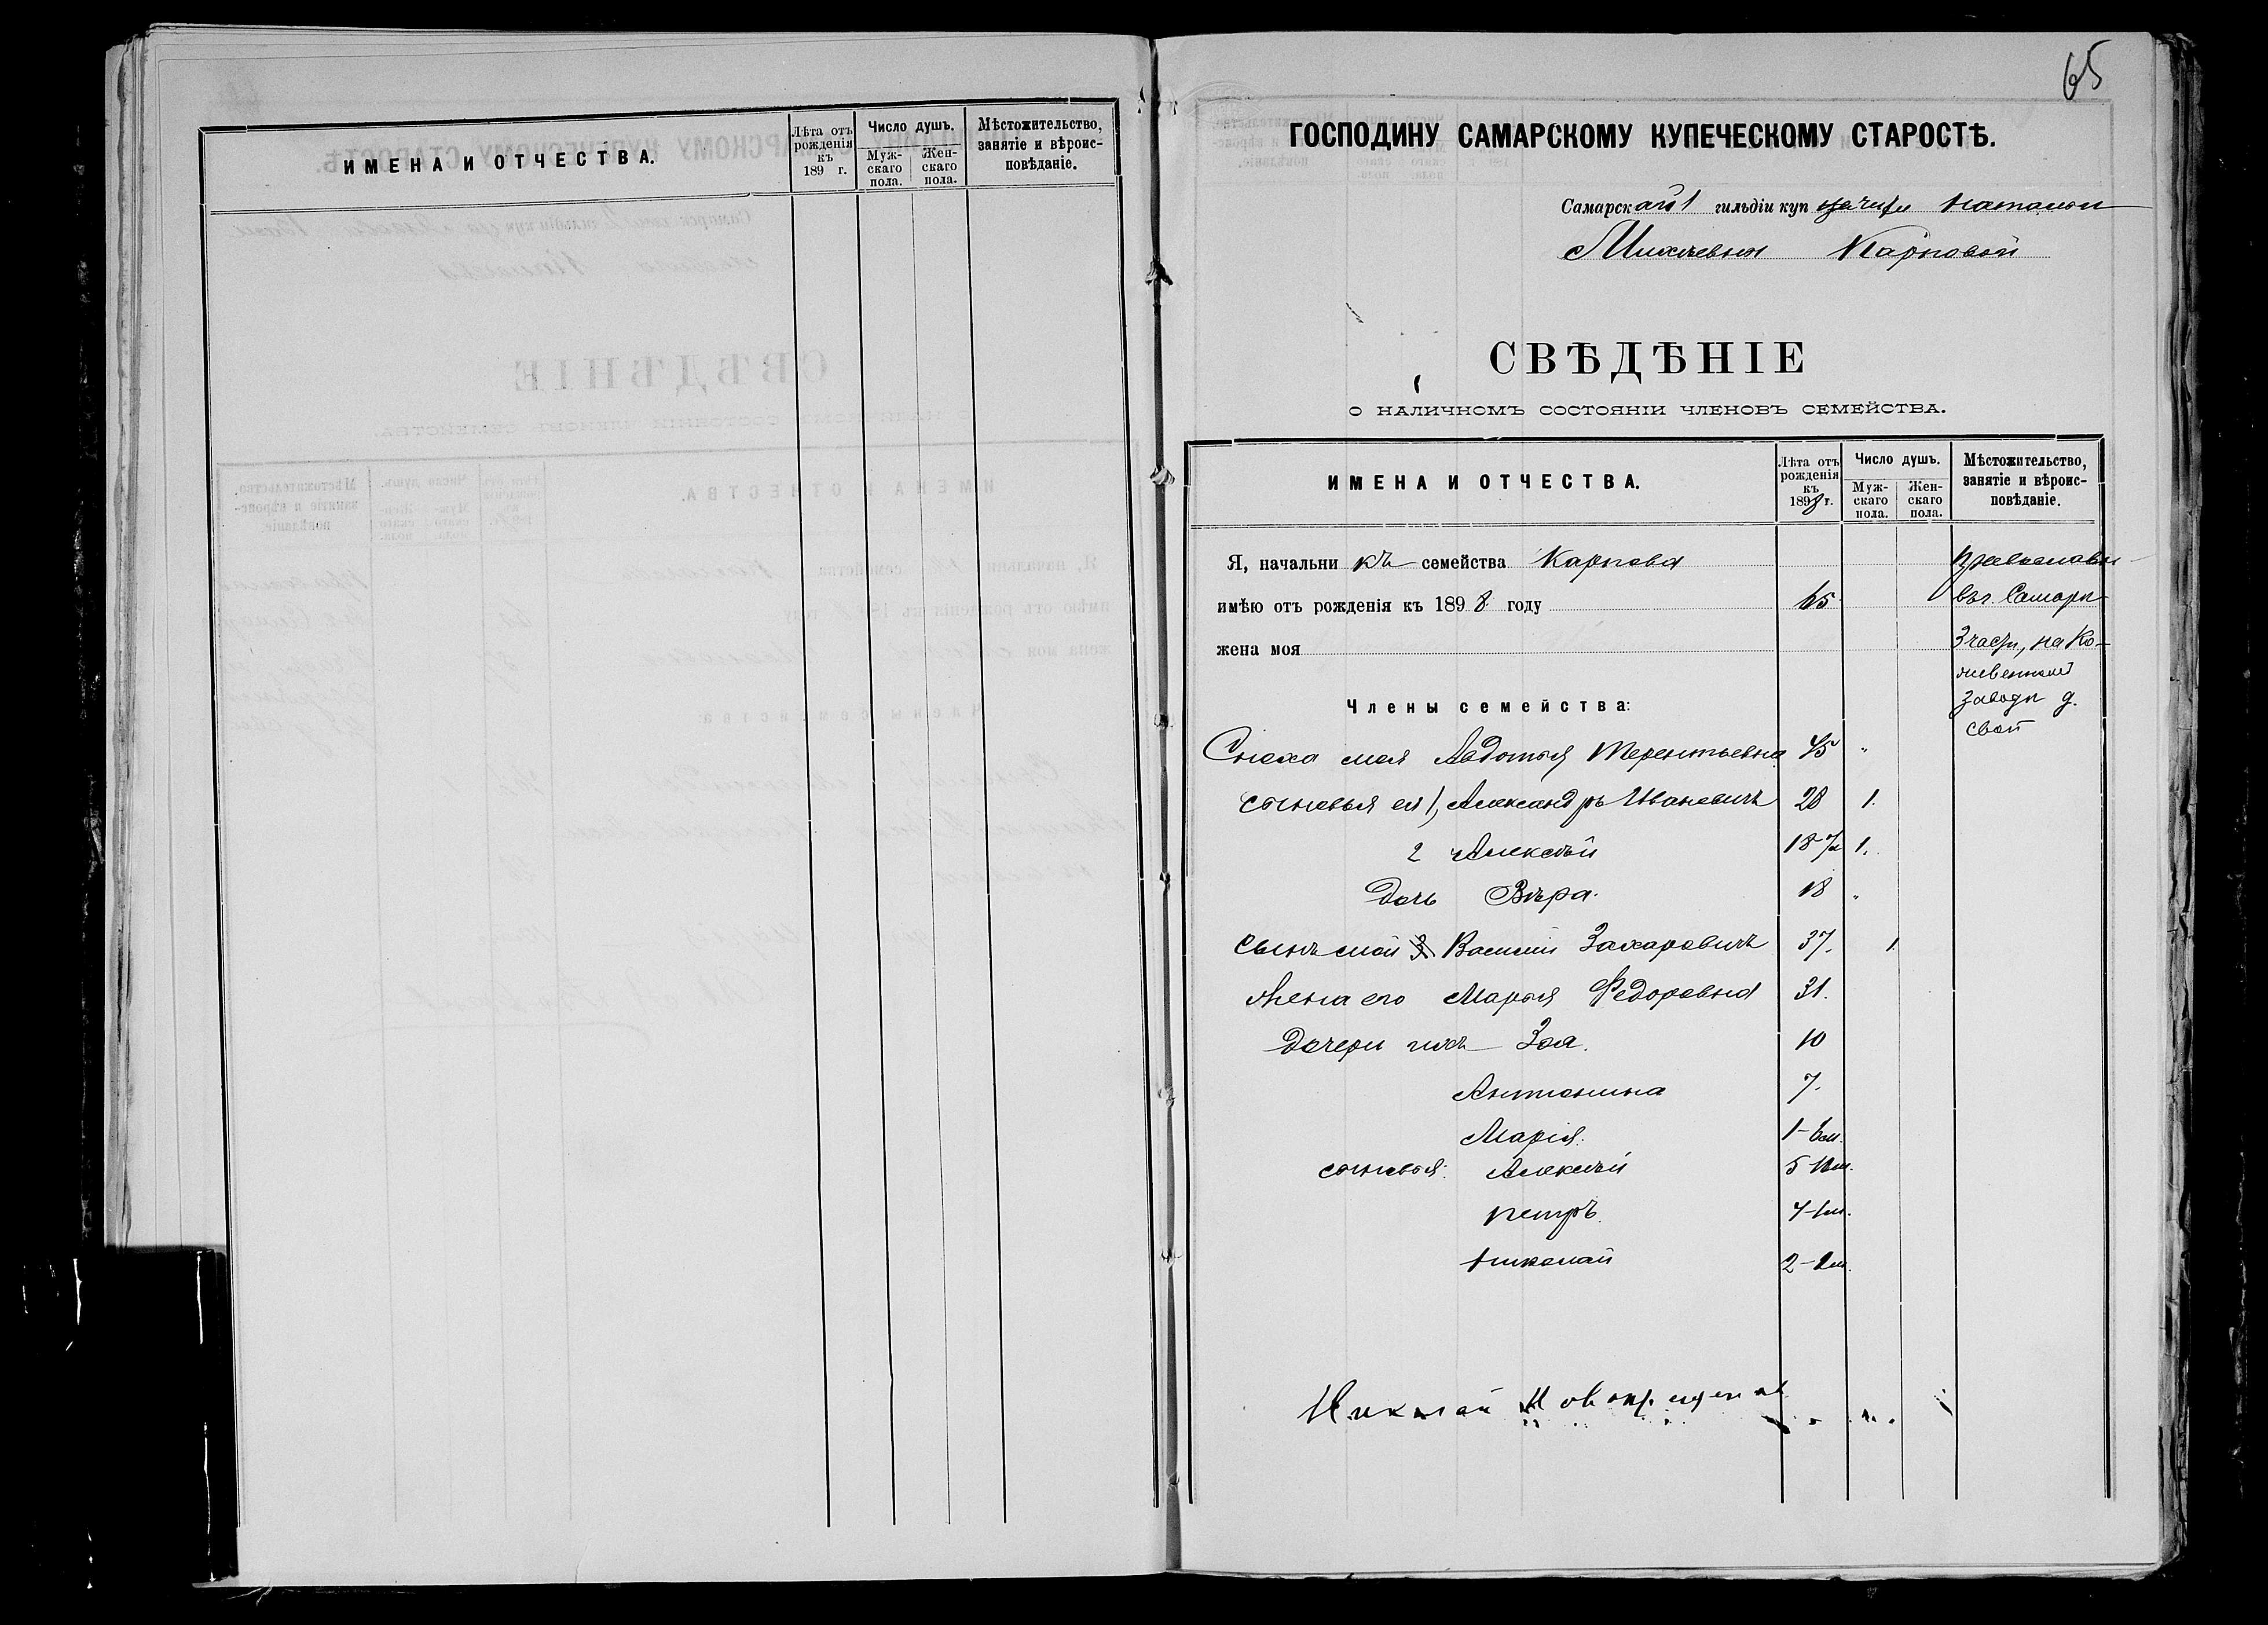 ИМЕНА И ОТЧЕСТВА.
Лѣта отъ рожденія къ 189 г.
Число душъ.
Муж-скаго пола.
Жен-скаго пола.
Мѣстожительство, занятіе и вѣроис-повѣданіе.
65
ГОСПОДИНУ САМАРСКОМУ КУПЕЧЕСКОМУ СТАРОСТѢ.
Самарской 1 гильдіи куп
Карповой
СВѢДѢНІЕ
О НАЛИЧНОМЪ СОСТОЯНІИ ЧЛЕНОВЪ СЕМЕЙСТВА.
ИМЕНА И ОТЧЕСТВА.
Лѣта отъ рожденія къ 1898 г.
Число душъ.
Муж-скаго пола.
Жен-скаго пола.
Мѣстожительство, занятіе и вѣроис-повѣданіе.
Я, начальни къ семейства Карпова
имѣю отъ рожденія къ 1898 году 65 въ г. Самарѣ
жена моя 3 части, на Ко-
жевенном
заводѣ д.
свой
Члены семейства:
Сноха моя Авдотья Терентьевна 45 "
сыновья ея 1, Александръ Ивановичъ 28 1.
2 Алексѣй 1.
дочь Вѣра. 18 "
сынъ мой Василій Захаровичъ 37. 1
Жена его Марья Федоровна 31.
дочери ихъ Зоя. 10
Антонина 7.
Марія. 1-6 м.
сыновья: Алексѣй
Петръ.
Николай
Николай